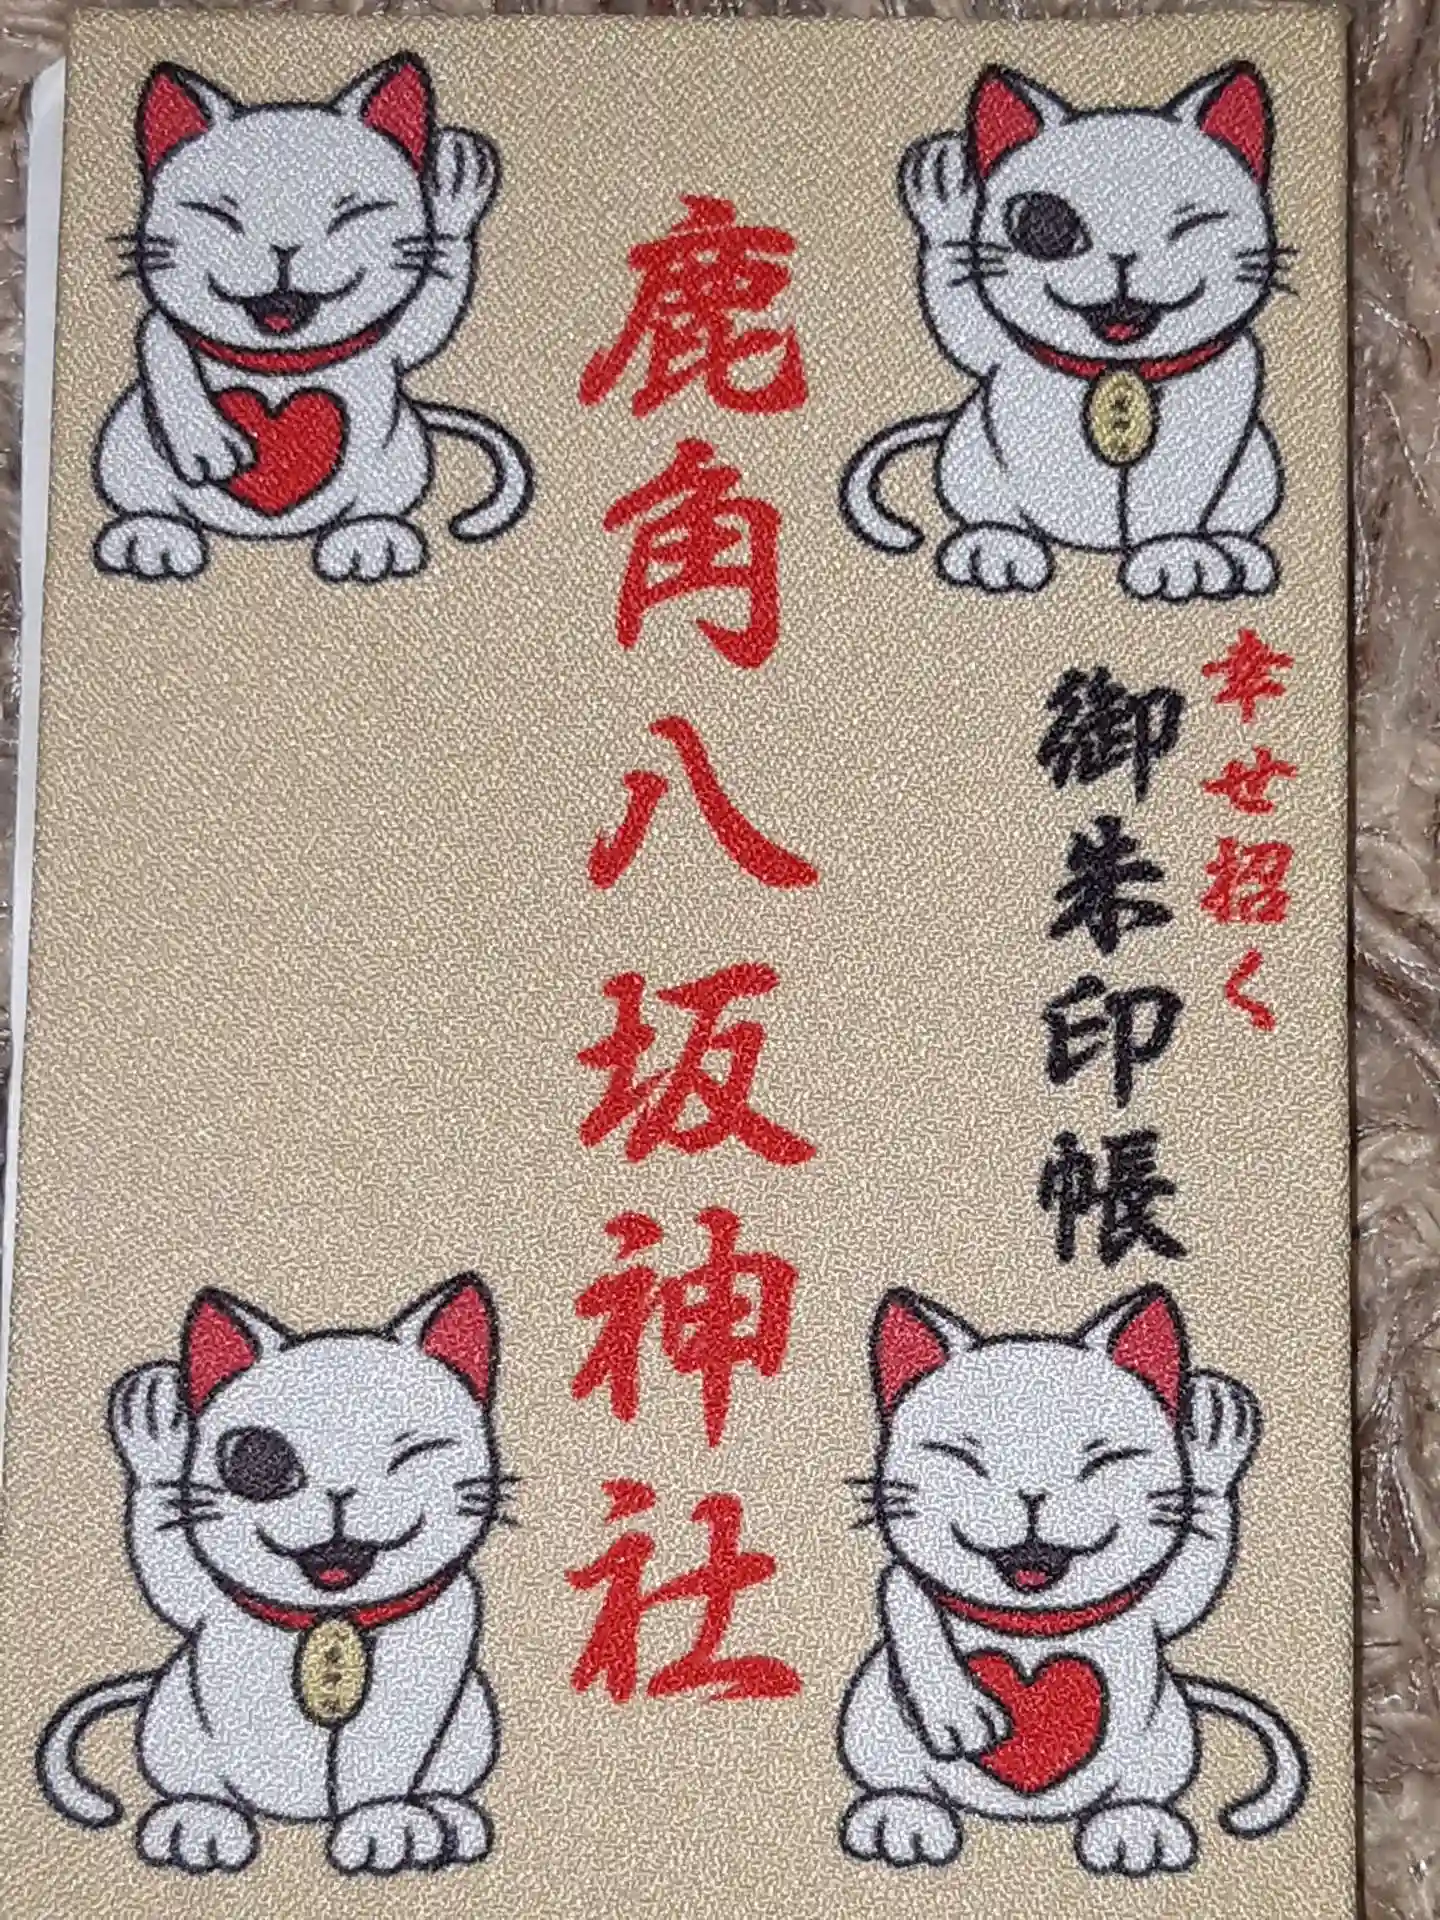 幸せ招く
御朱印帳
鹿角八坂神社